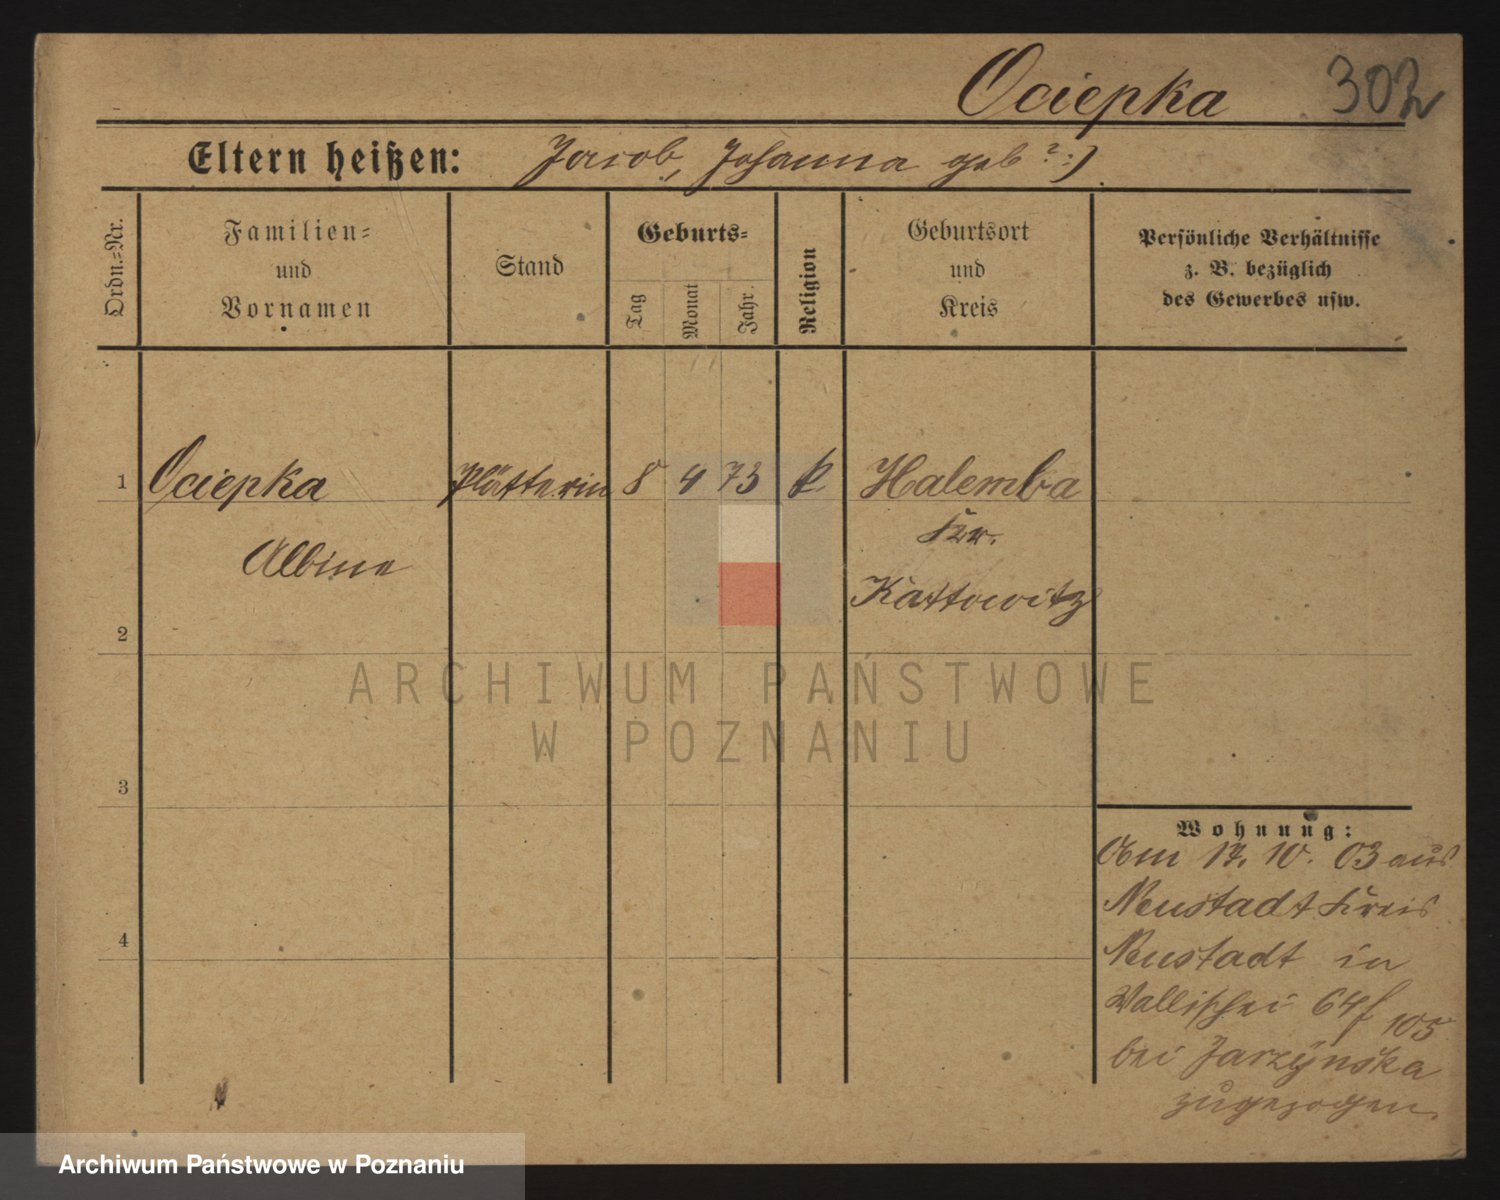 Ociepka 302
Eltern heißen: Jacob, Johanna geb ? :)
Ordn.-Nr.
Familien-
und
Vornamen
Stand
Geburts-
Tag
Monat
Jahr.
Religion
Geburtsort
und
Kreis
Persönliche Verhältnisse
z. B. bezüglich
des Gewerbes usw.
1 Ociepka Plätterin 8 4 73 k. Halemba
Albine
Kr.
Kattowitz
2
3
4
Wohnung:
Am 17. 10. 03 aus
Neustadt Kreis
Neustadt in
Wallischei 64/
105
bei Jarzynska
zugezogen.
ARCHIWUM PAŃSTWOWE
W POZNANIU
Archiwum Państwowe w Poznaniu